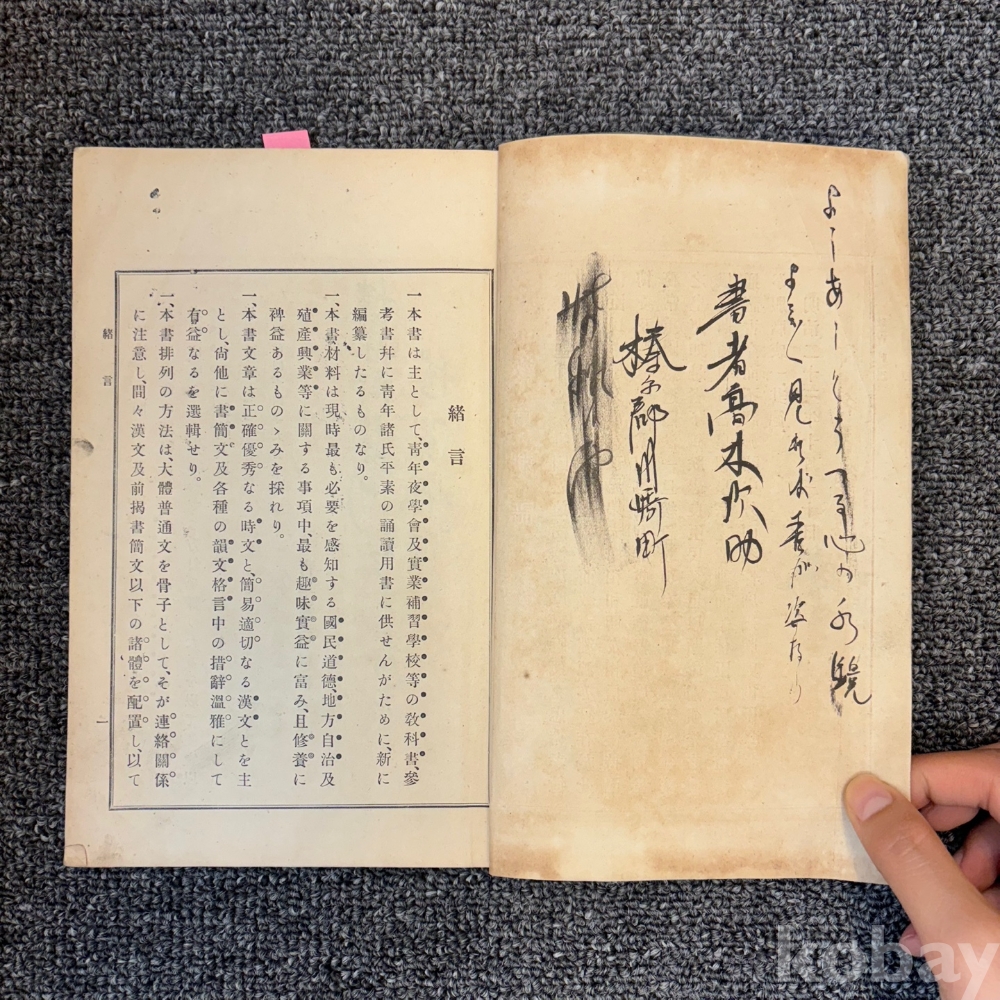 よしあしとうつる心の水鏡
よくよく見れば吾が姿なり
書者高木次助
榛原郡川崎町
緒言
一 本書は主として、靑年夜學會及實業補習學校等の敎科書、參
考書幷に靑年諸氏平素の誦讀用書に供せんがために、新に
編纂したるものなり。
一、本書、材料は現時最も必要を感知する國民道德、地方自治及
殖產興業等に關する事項中、最も趣味實益に富み、且修養に
裨益あるものゝみを採れり。
一、本書文章は正確優秀なる時文と、簡易適切なる漢文とを主
とし、尙他に書簡文及各種の韻文格言中の措辭溫雅にして
有益なるを選輯せり。
一、本書排列の方法は、大體普通文を骨子として、そが連絡關係
に注意し、間々漢文及前揭書簡文以下の諸體を配置し、以て
緒言
一
krobay